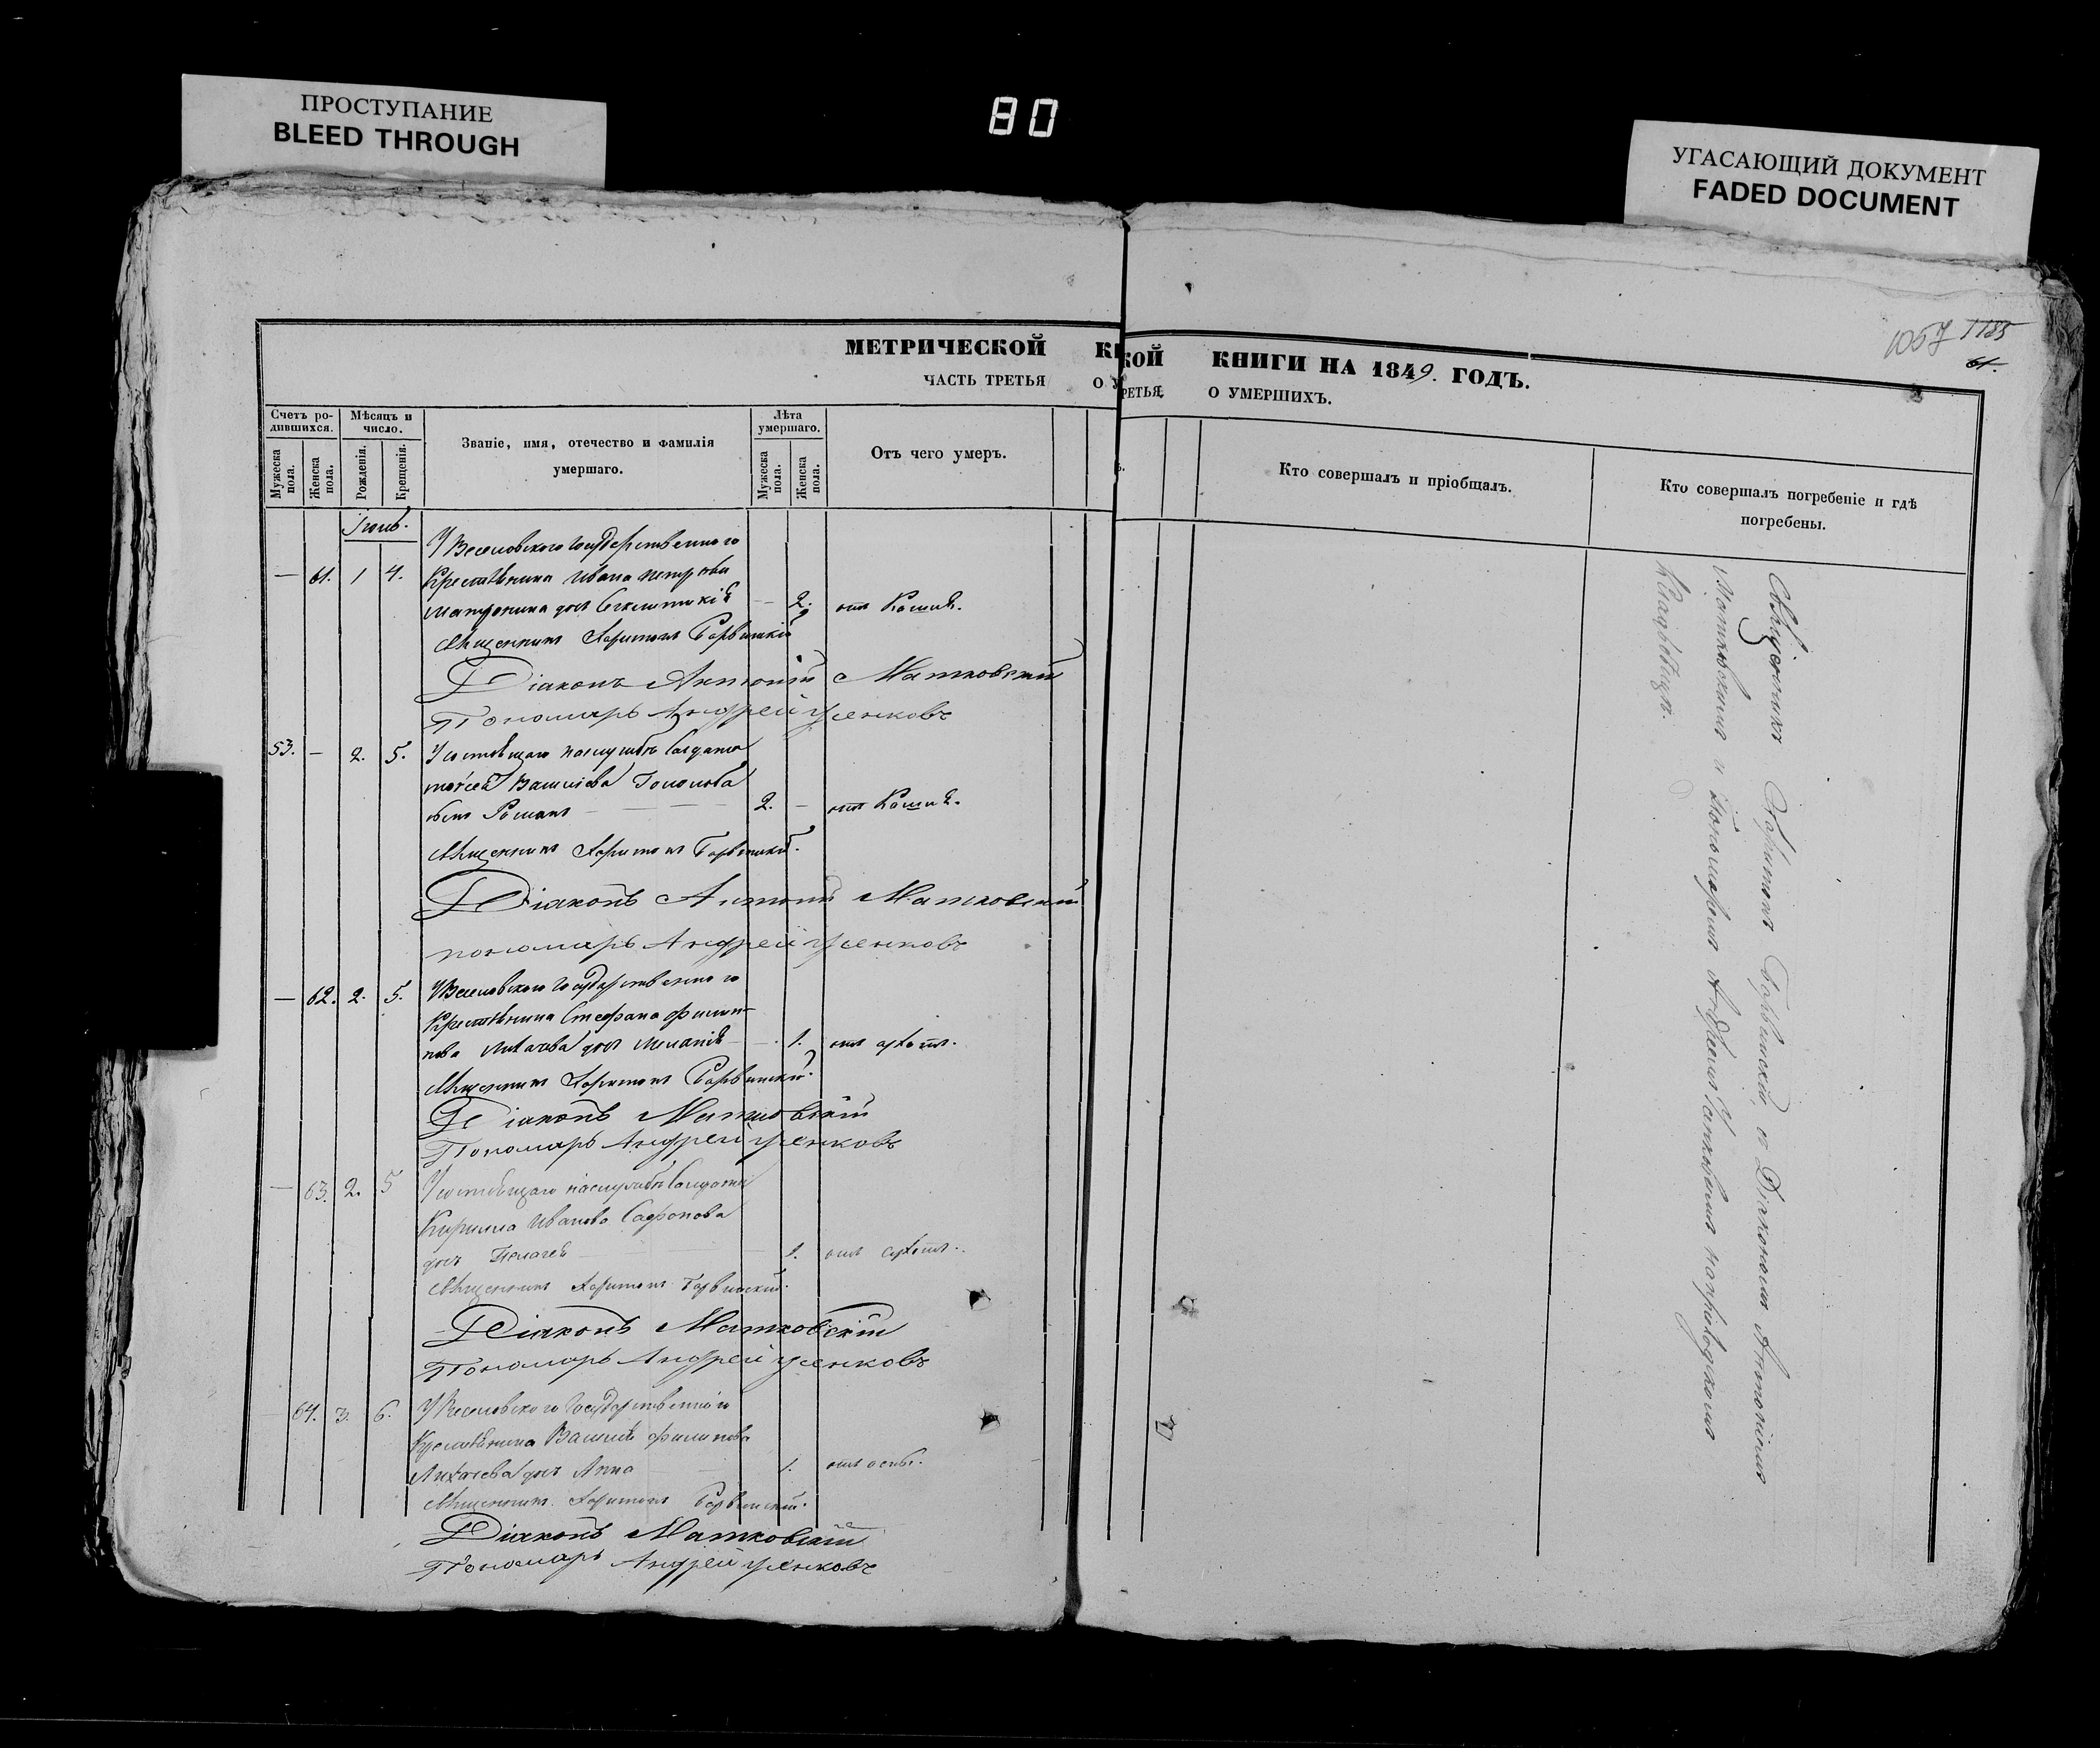 ПРОСТУПАНИЕ
BLEED THROUGH
80
УГАСАЮЩИЙ ДОКУМЕНТ
FADED DOCUMENT
1057 1185
61.
МЕТРИЧЕСКОЙ КН
КОЙ КНИГИ НА 1849. ГОДЪ.
ЧАСТЬ ТРЕТЬЯ О У
РЕТЬЯ. О УМЕРШИХЪ.
Счетъ ро-
дившихся.
Мужеска пола.
Женска пола.
Мѣсяцъ и
число.
Рожденія.
Крещенія.
Званіе, имя, отечество и фамилія
умершаго.
Лѣта
умершаго.
Мужеска пола.
Женска пола.
Отъ чего умеръ.
Кто совершалъ и пріобщалъ.
Кто совершалъ погребеніе и гдѣ
погребены.
Іюнь.
У Веселовского Государственного
— 61. 1 4. Крестьянина Ивана Петрова
дочь — 2. отъ Кашля.
Священникъ Харитонъ Барвинскій
Діаконъ Антоній Матковскій
Пономарь Андрей Усенковъ
53. — 2. 5. Солдата
Василіева
сынъ Романъ — 2. — отъ Кашля.
Священникъ Харитонъ Барвинскій.
Діаконъ Антоній Матковскій
пономарь Андрей Усенковъ
— 62. 2. 5. У Веселовского Государственного
Крестьянина Стефана Филип-
пова Лихачева дочь Меланія — 1. отъ
Священникъ Харитонъ Барвинскій.
Діаконъ Матковскій
Пономарь Андрей Усенковъ
— 63. 2. 5 Солдата
Кирилла Иванова Сафонова
дочь — 1. отъ
Священникъ Харитонъ Барвинскій.
Діаконъ Матковскій
Пономарь Андрей Усенковъ
— 64. 3. 6. У Веселовского Государственного
Крестьянина Василія Филипова
Лихачева дочь Анна 1. отъ оспы.
Священникъ Харитонъ Барвинскій.
Діаконъ Матковскій
Пономарь Андрей Усенковъ
Священникъ Харитонъ Барвинскій, съ Діакономъ Антоніемъ
Матковскимъ и Пономаремъ Андреемъ на приходскомъ
Кладбищѣ.